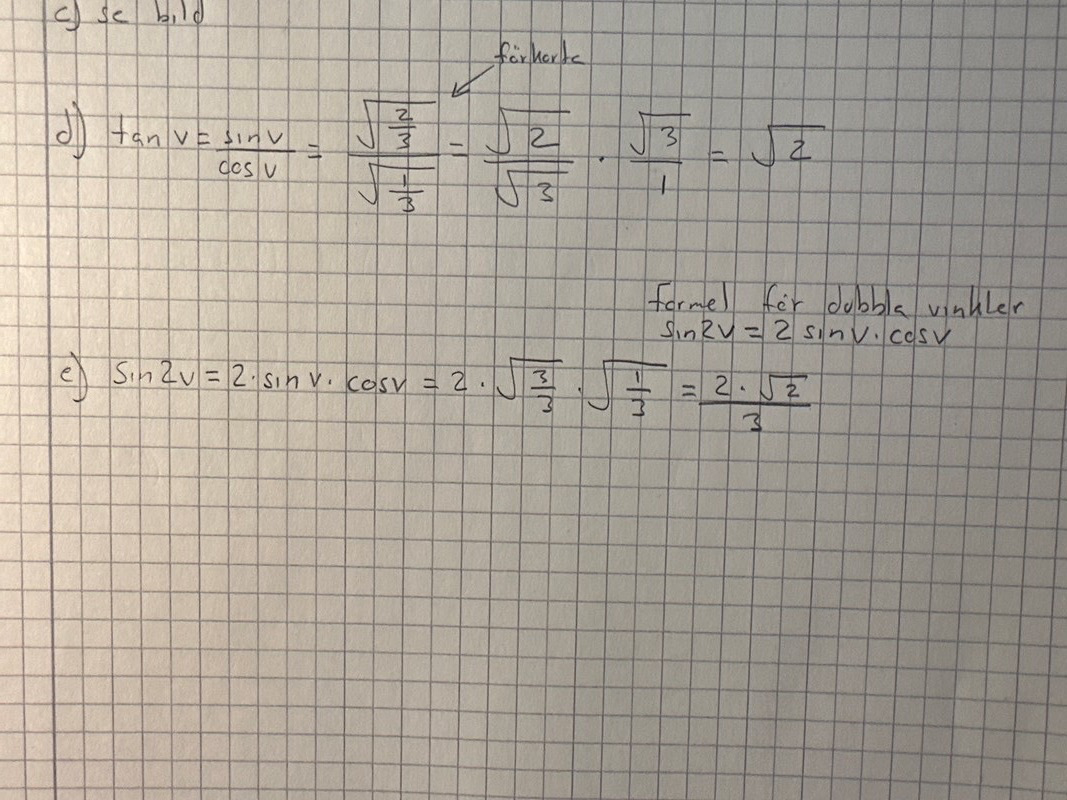 c) se bild
förkorta
d) tan v = sin v / cos v = √(2/3) / √(1/3) = √2 / √3 · √3 / 1 = √2
Formel för dubbla vinkler
sin2v = 2 sinv · cosv
e) sin2v = 2 · sin v · cosv = 2 · √(3/3) · √(1/3) = 2 · √2 / 3